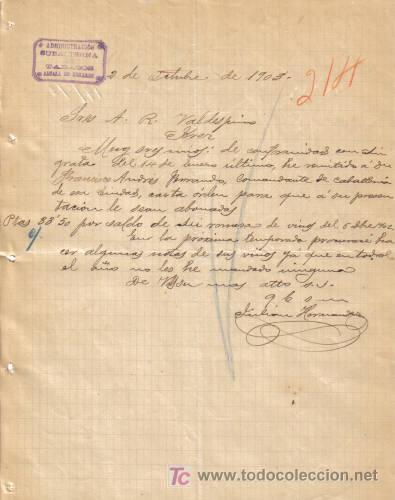 ADMINISTRACIÓN
SUBALTERNA
DE
TABACOS
ALCALÁ DE HENARES
2 de Octubre de 1903.
Sres A. R. Valdespino
Jerez
Muy sres mios: de conformidad con su
grata del 14 de Enero último, he remitido á Dn
Francisco Andrés Comandante de Caballeria
de esa ciudad, carta órden para que á su presen
tación le sean abonadas
Ptas 33'50 por saldo de su de vinos del 5 Dbre 1902.
En la próxima temporada procuraré ha
cer algunas notas de sus vinos ya que en todo
el año no les he mandado ninguna
De Vds su mas atto s.s.
q b s m
Julian Hernandez
TC www.todocoleccion.net